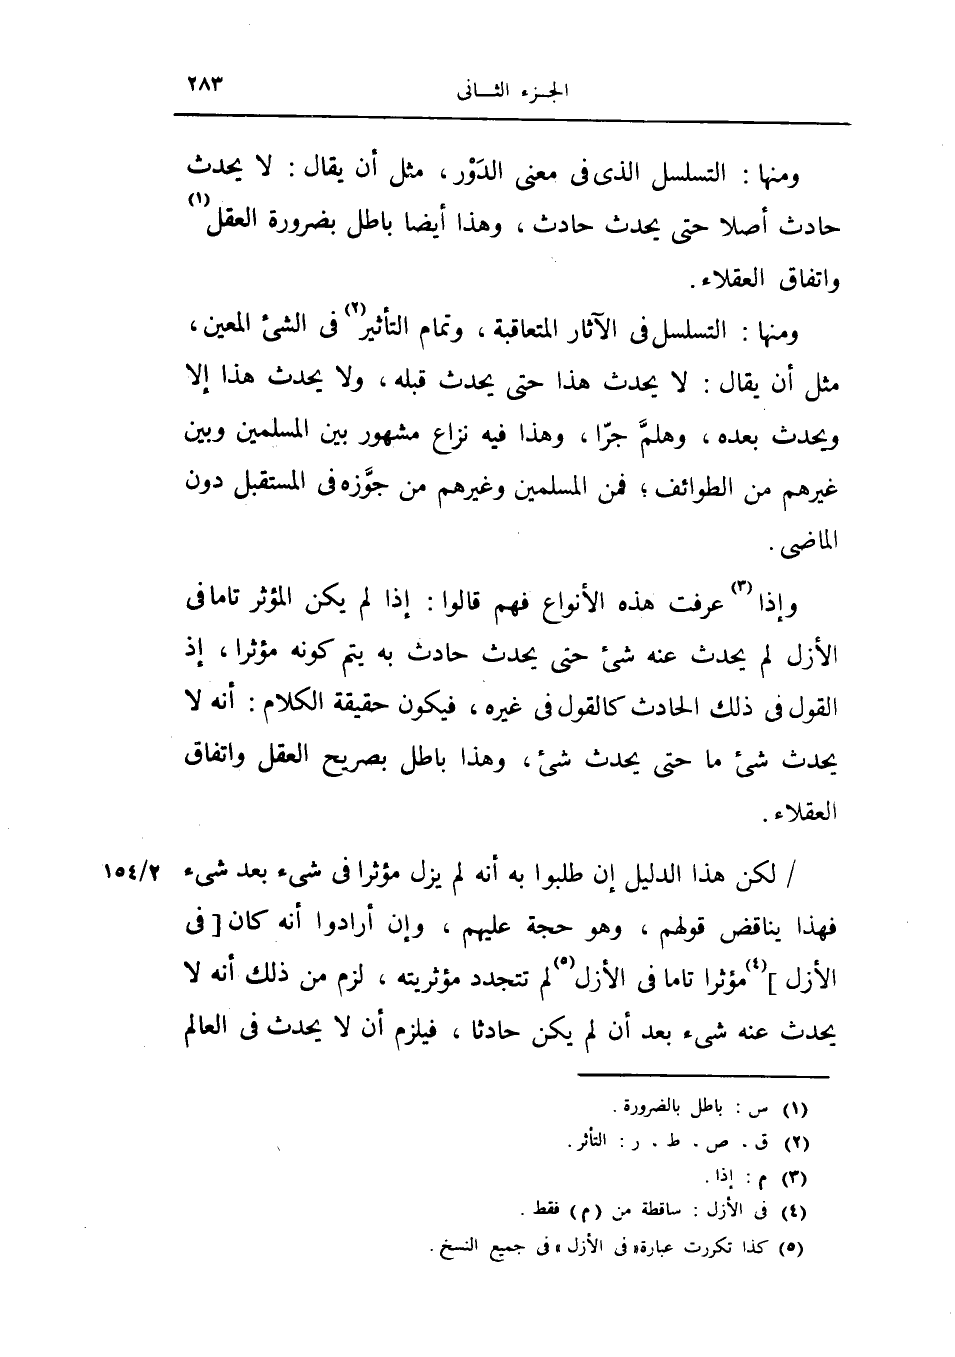 الجزء الثانى ٢٨٣
ومنها : التسلسل الذى فى معنى الدَوْر ، مثل أن يقال : لا يحدث
حادث أصلا حتى يحدث حادث ، وهذا أيضا باطل بضرورة العقل(١)
واتفاق العقلاء .
ومنها : التسلسل فى الآثار المتعاقبة ، وتمام التأثير(٢) فى الشئ المعين ،
مثل أن يقال : لا يحدث هذا حتى يحدث قبله ، ولا يحدث هذا إلا
ويحدث بعده ، وهلمَّ جرّا ، وهذا فيه نزاع مشهور بين المسلمين وبين
غيرهم من الطوائف ؛ فمن المسلمين وغيرهم من جوَّزه فى المستقبل دون
الماضى .
وإذا(٣) عرفت هذه الأنواع فهم قالوا : إذا لم يكن المؤثر تاما فى
الأزل لم يحدث عنه شئ حتى يحدث حادث به يتم كونه مؤثرا ، إذ
القول فى ذلك الحادث كالقول فى غيره ، فيكون حقيقة الكلام : أنه لا
يحدث شئ ما حتى يحدث شئ ، وهذا باطل بصريح العقل واتفاق
العقلاء .
/ لكن هذا الدليل إن طلبوا به أنه لم يزل مؤثرا فى شىء بعد شىء ١٥٤/٢
فهذا يناقض قولهم ، وهو حجة عليهم ، وإن أرادوا أنه كان [ فى
الأزل ](٤) مؤثرا تاما فى الأزل(٥) لم تتجدد مؤثريته ، لزم من ذلك أنه لا
يحدث عنه شىء بعد أن لم يكن حادثا ، فيلزم أن لا يحدث فى العالم
(١) س : باطل بالضرورة .
(٢) ق . ص . ط . ر : التأثر .
(٣) م : إذا .
(٤) فى الأزل : ساقطة من (م) فقط .
(٥) كذا تكررت عبارة« فى الأزل » فى جميع النسخ .